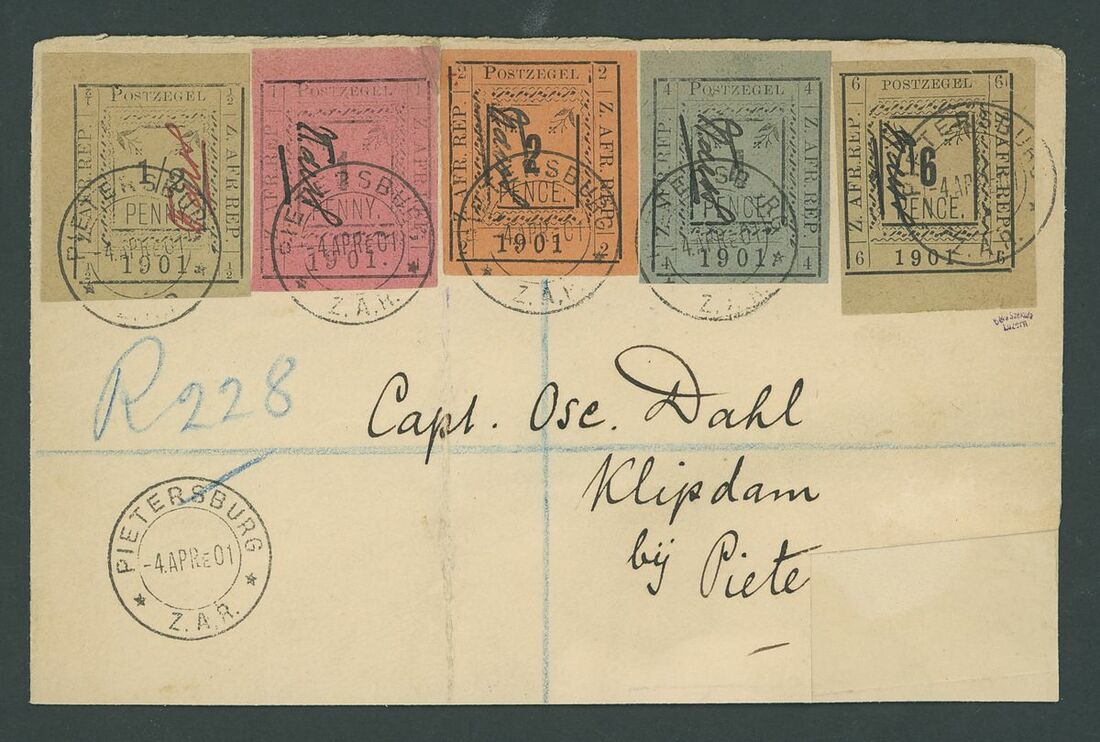 ½ POSTZEGEL ½
Z. AFR. REP. Z. AFR. REP.
1/2
PENNY
½ 1901 ½
PIETERSBURG
-4APRE01
Z.A.R.
1 POSTZEGEL 1
AFR. REP. Z. AFR. REP.
1
PENNY.
1901.
PIETERSBURG
-4APRE01
Z.A.R.
2 POSTZEGEL 2
AFR. REP. Z. AFR. REP.
2
PENCE.
2 1901 2
PIETERSBURG
-4APRE01
Z.A.R.
4 POSTZEGEL 4
Z. AFR. REP. Z. AFR. REP.
PENCE.
4 1901 4
PIETERSBURG
4APRE01
Z.A.R.
6 POSTZEGEL 6
Z. AFR. REP. Z. AFR. REP.
6
PENCE.
6 1901 6
PIETERSBURG
4APR
Z.A.
Luzern
R 228
Capt. Osc. Dahl
Klipdam
bij Piete
PIETERSBURG
-4APRE01
Z.A.R.